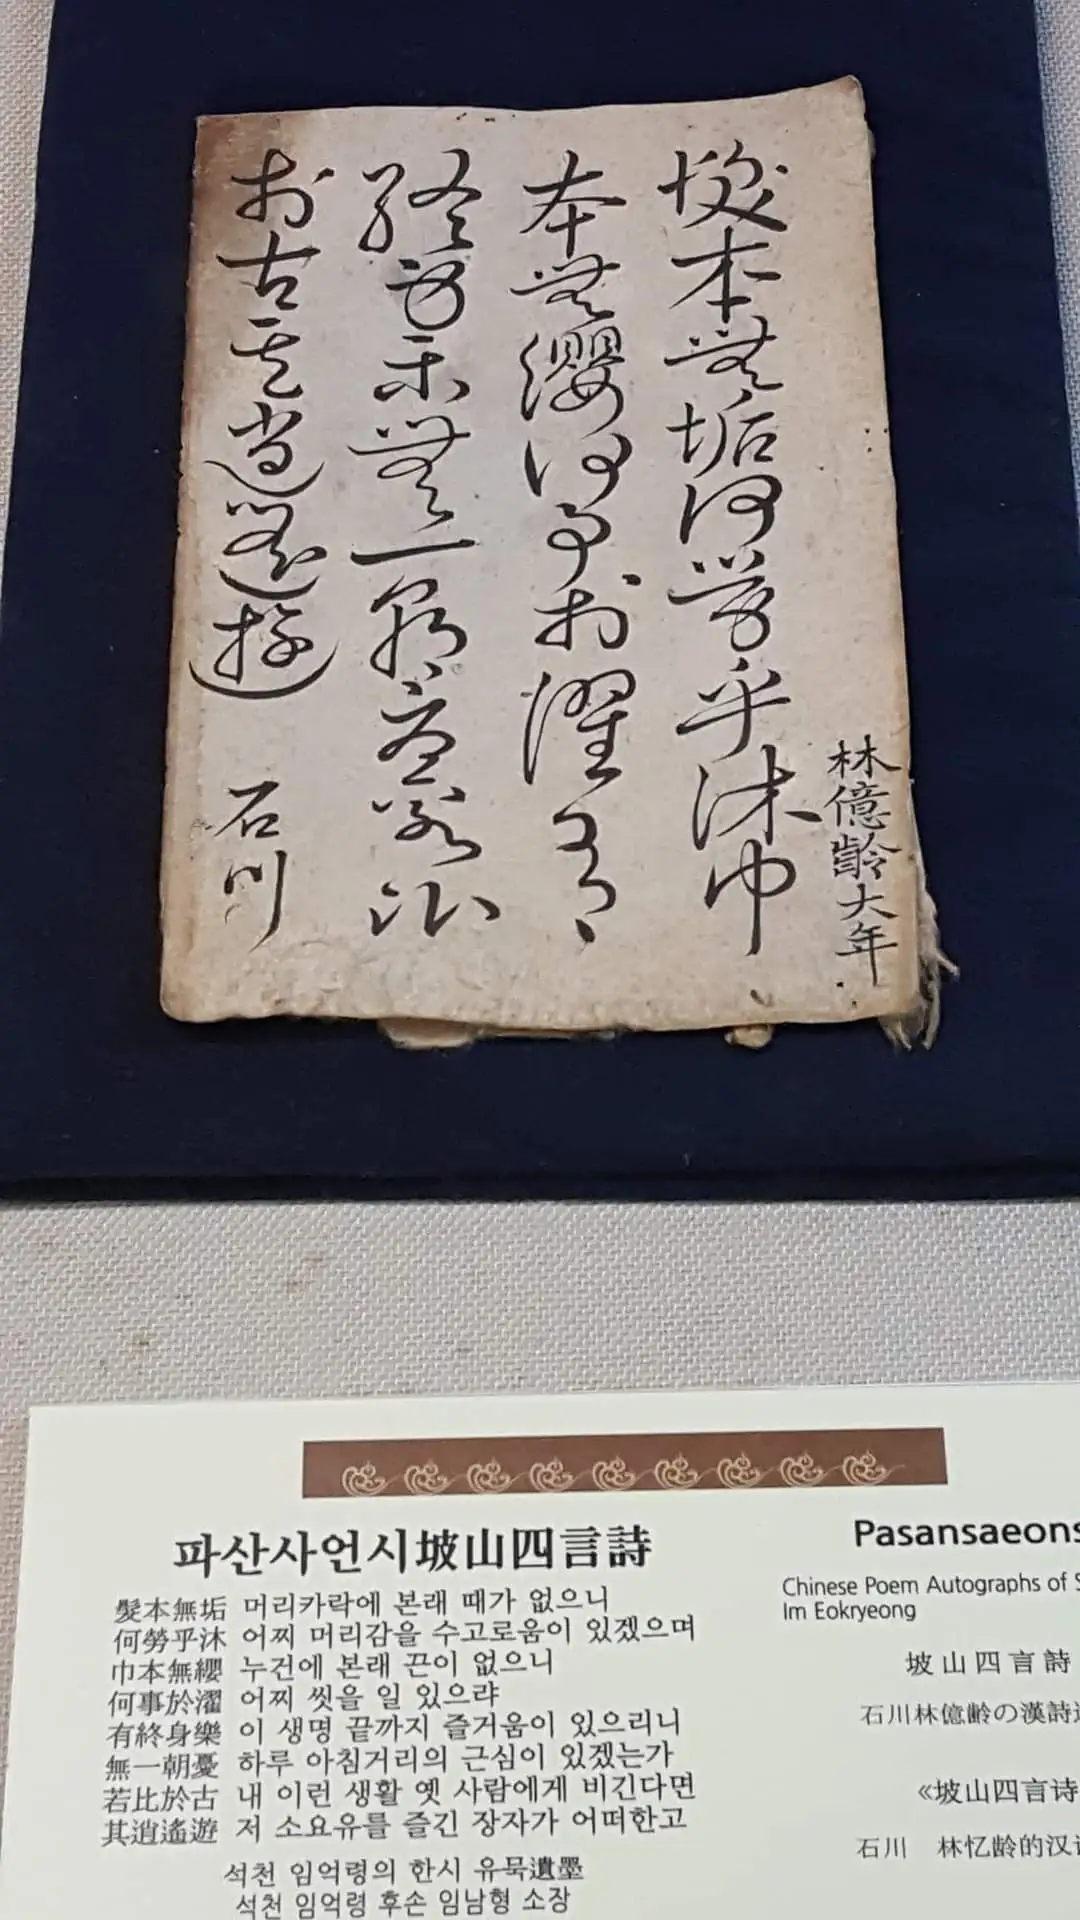 林億齡大年
髮本無垢何勞乎沐巾
本無纓何事於濯有
終身樂無一朝憂若比
於古其逍遙遊 石川
파산사언시坡山四言詩
髮本無垢 머리카락에 본래 때가 없으니
何勞乎沐 어찌 머리감을 수고로움이 있겠으며
巾本無纓 누건에 본래 끈이 없으니
何事於濯 어찌 씻을 일 있으랴
有終身樂 이 생명 끝까지 즐거움이 있으리니
無一朝憂 하루 아침거리의 근심이 있겠는가
若比於古 내 이런 생활 옛 사람에게 비긴다면
其逍遙遊 저 소요유를 즐긴 장자가 어떠한고
석천 임억령의 한시 유묵遺墨
석천 임억령 후손 임남형 소장
Pasansaeons
Chinese Poem Autographs of S
Im Eokryeong
坡山四言詩
石川林億齡の漢詩
《坡山四言诗
石川 林忆龄的汉